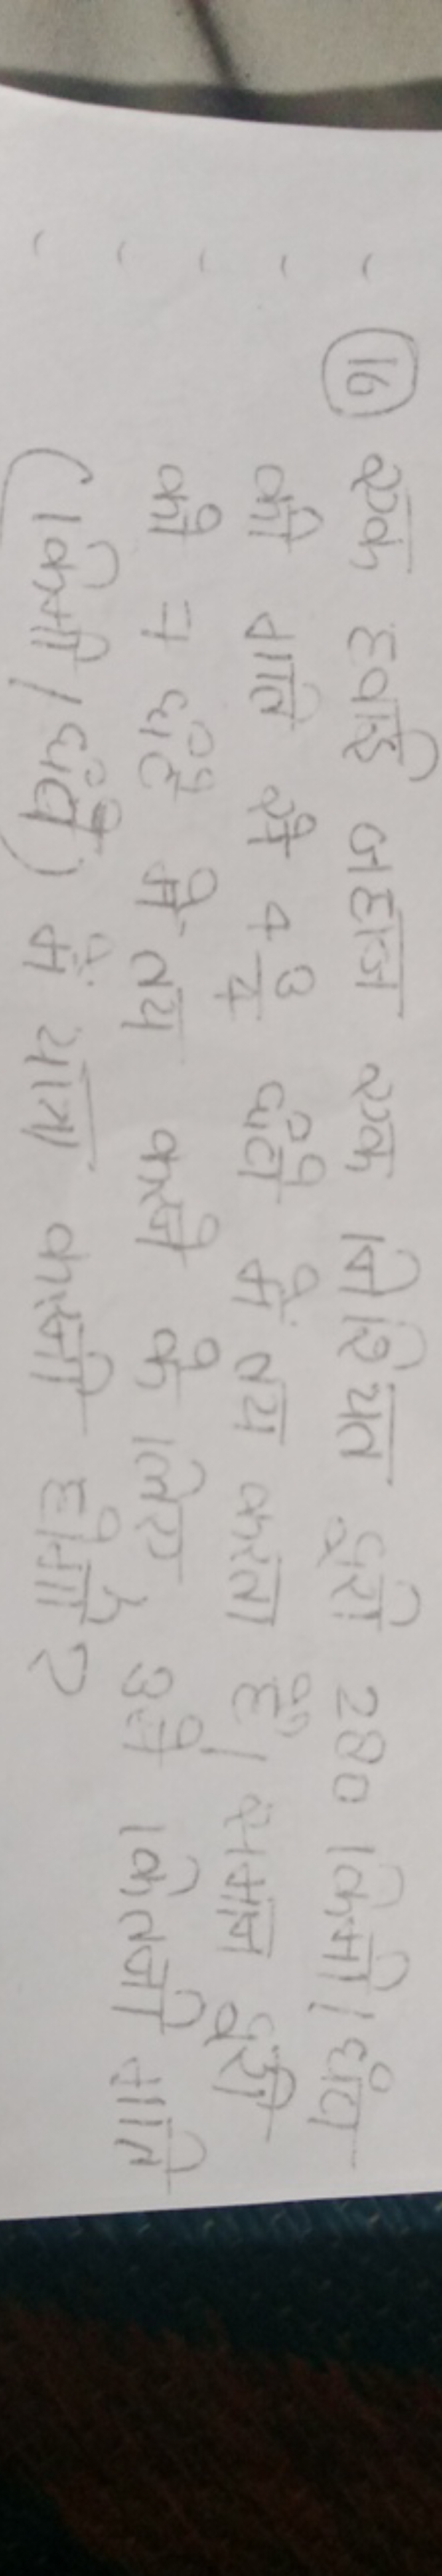 (16) एक हवाई जहाज एक निश्चित दूरी 280 किमी / घंटा
की गति से 4 3/4 घंटे में तय करता है। समान दूरी
को 7 घंटे में तय करने के लिए उसे कितनी गति
(किमी / घंटे) में यात्रा करनी होगी ?